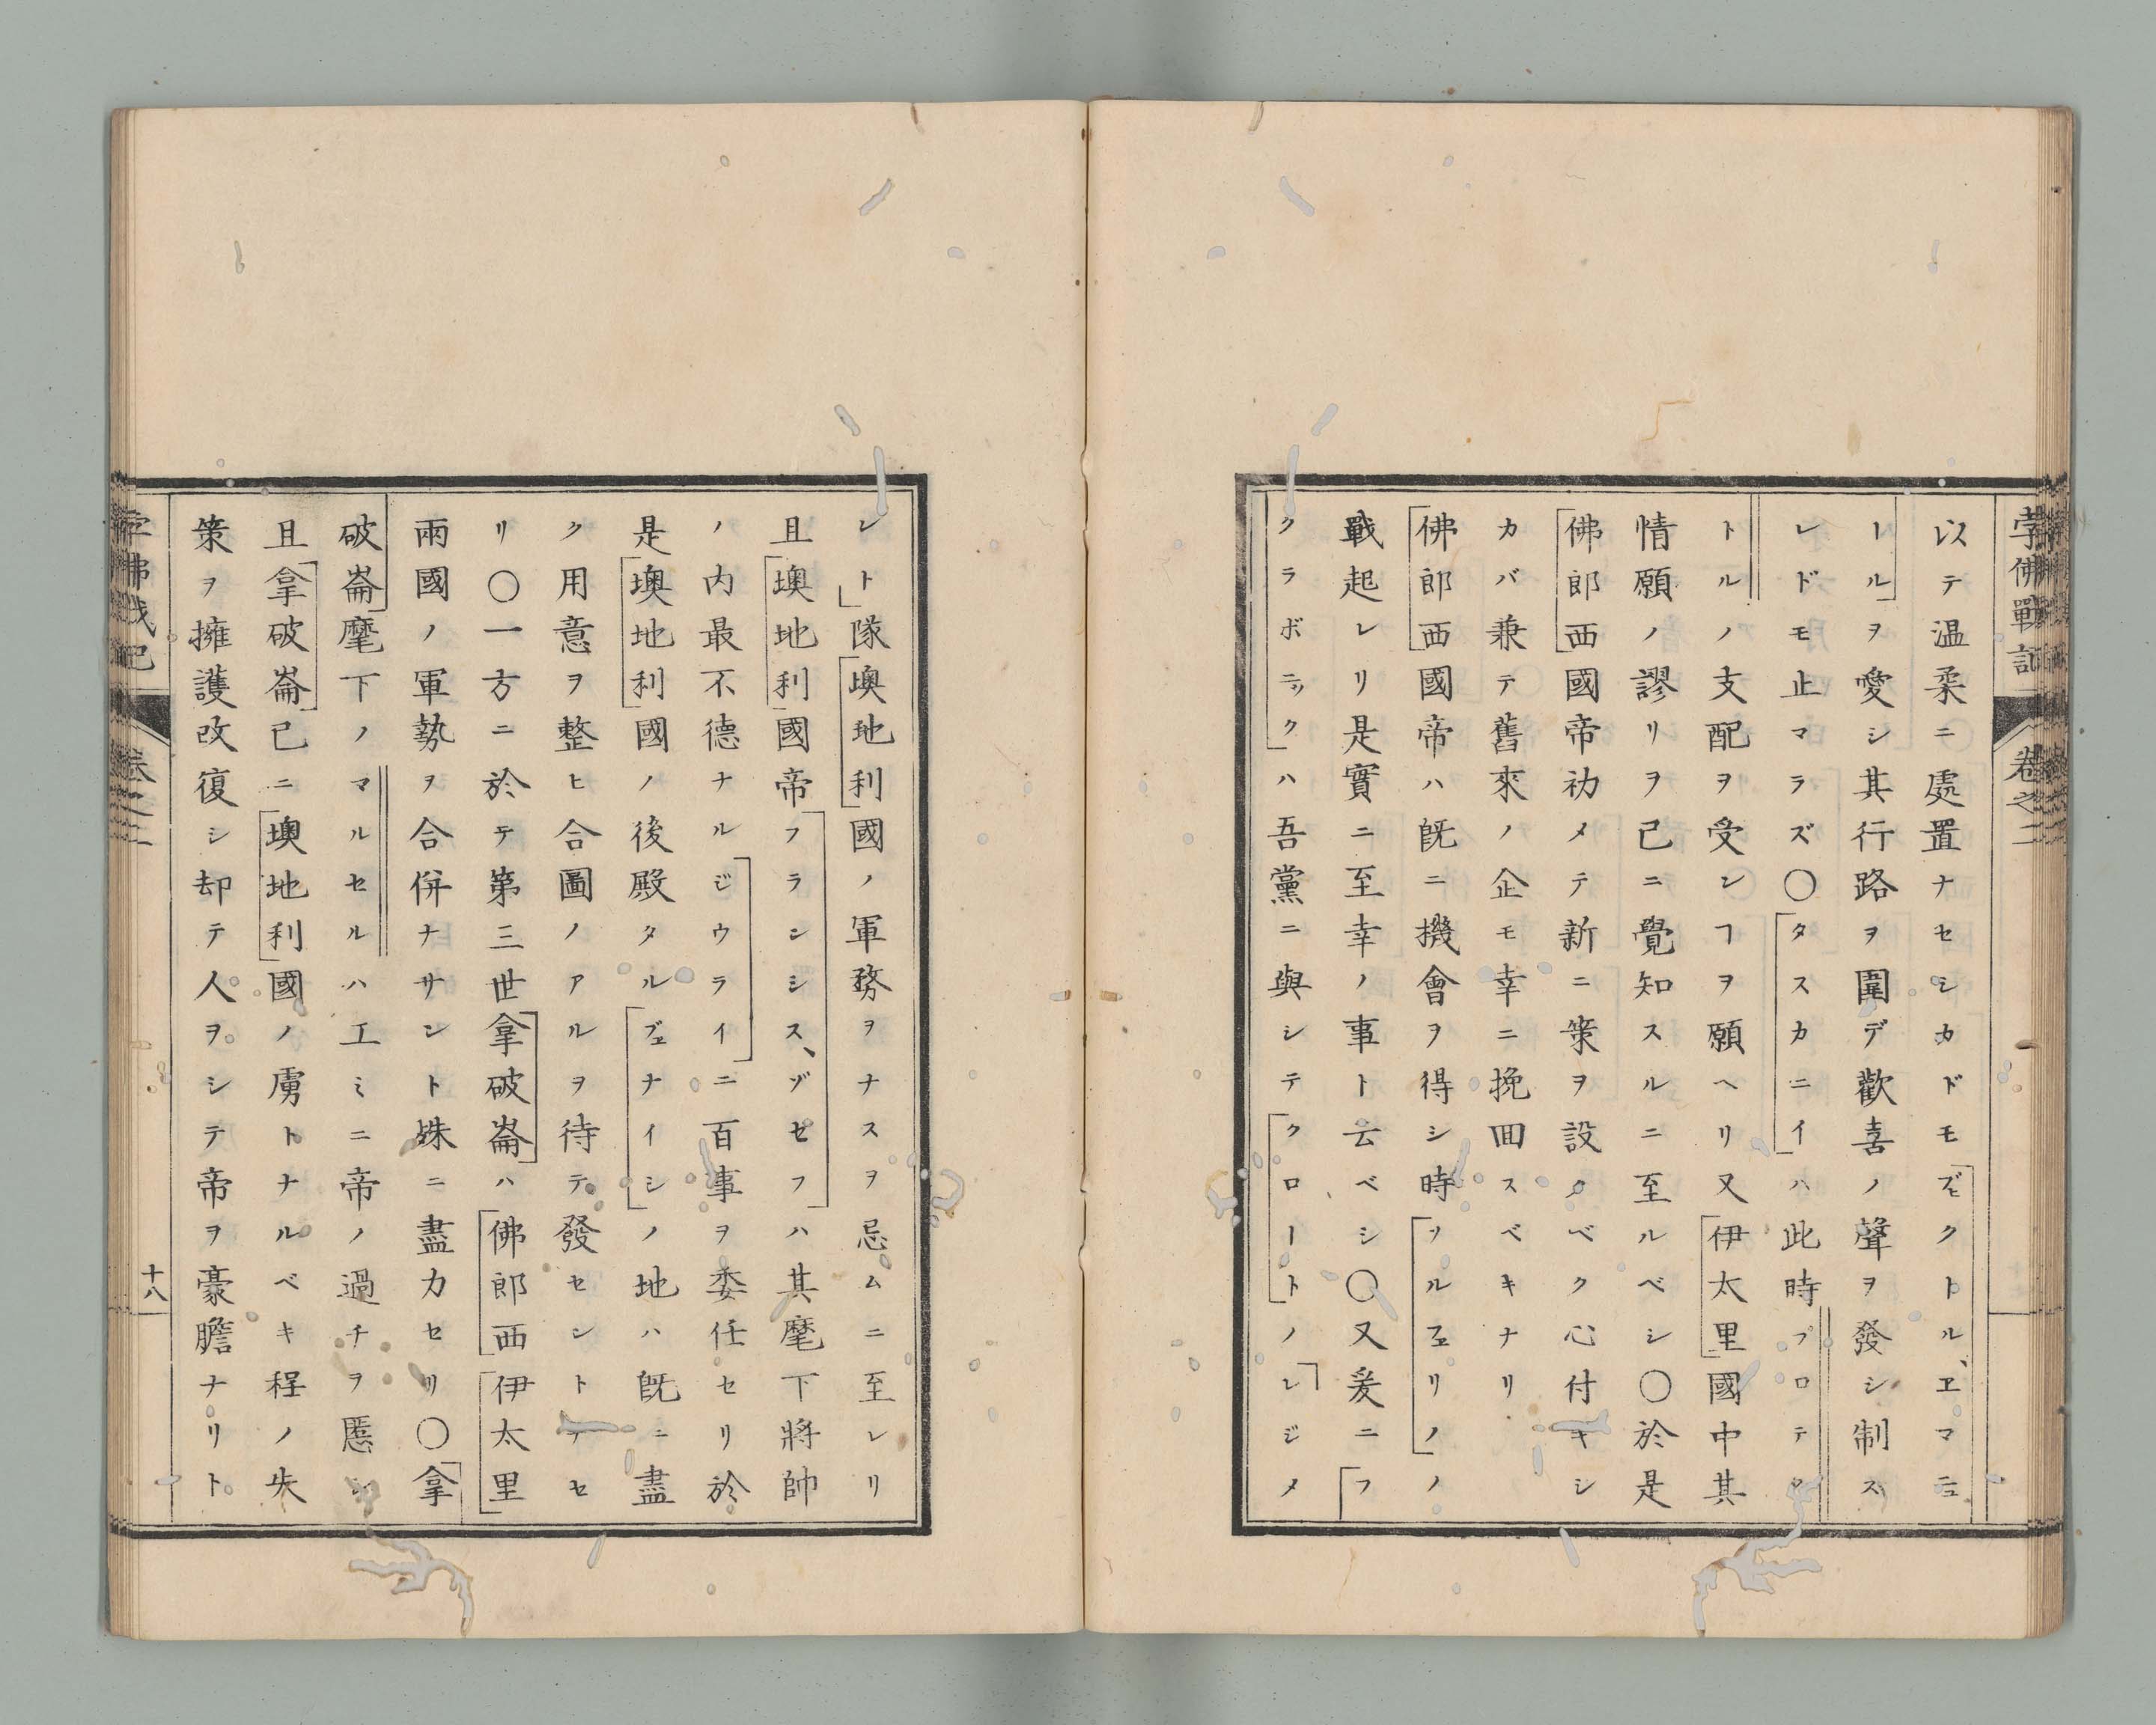 孛佛戰記 卷之二
以テ温柔ニ處置ナセシカドモ「ビクトル、エマニュ
ール」ヲ愛シ其行路ヲ圍デ歡喜ノ聲ヲ發シ制ス
レドモ止マラズ〇「タスカニイ」ハ此時プロテク
トルノ支配ヲ受ンヿヲ願ヘリ又「伊太里」國中其
情願ノ謬リヲ已ニ覺知スルニ至ルベシ〇於是
「佛郎西」國帝初メテ新ニ策ヲ設クベク心付キシ
カバ兼テ舊來ノ企モ幸ニ挽回スベキナリ
「佛郎西」國帝ハ既ニ機會ヲ得シ時「ソルフェリノ」ノ
戰起レリ是實ニ至幸ノ事ト云ベシ〇又爰ニ「フ
クラボニック」ハ吾黨ニ與シテ「クロート」ノ「レジメ
レト」隊「墺地利」國ノ軍務ヲナスヲ忌ムニ至レリ
且「墺地利」國帝「フランシス、ヅゼフ」ハ其麾下將帥
ノ内最不德ナル「ジウライ」ニ百事ヲ委任セリ於
是「墺地利」國ノ後殿タル「ヴェナイシ」ノ地ハ既ニ盡
ク用意ヲ整ヒ合圖ノアルヲ待テ發セントナセ
リ〇一方ニ於テ第三世「拿破崙」ハ「佛郎西」「伊太里」
兩國ノ軍勢ヲ合併ナサント姝ニ盡力セリ〇「拿
破崙」麾下ノマルセルハ工ミニ帝ノ過チヲ慝シ
且「拿破崙」已ニ「墺地利」國ノ虜トナルベキ程ノ失
策ヲ擁護改復シ却テ人ヲシテ帝ヲ豪膽ナリト
孛佛戰記 卷之二 十八